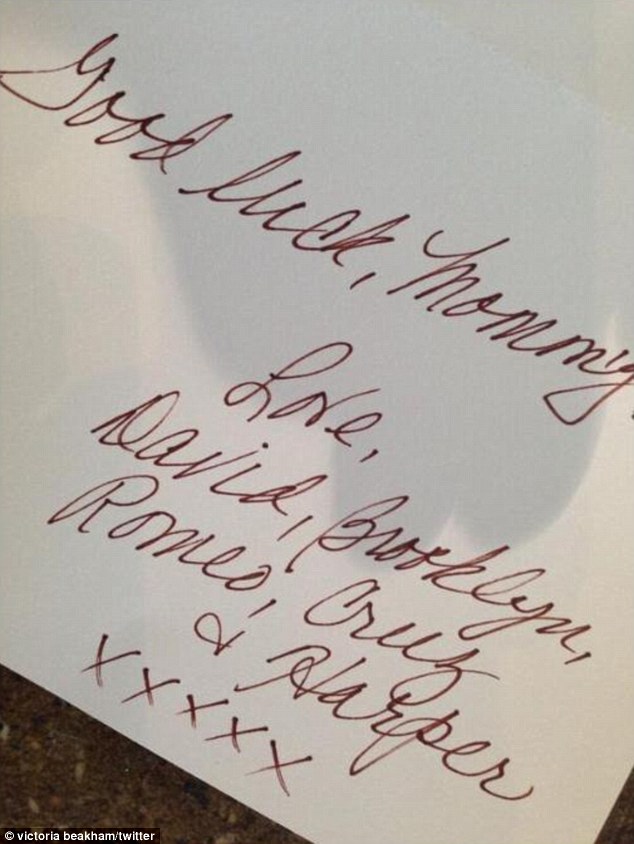 Good luck, Mommy!
Love,
David, Brooklyn,
Romeo, Cruz
& Harper
xxxxx
© victoria beakham/twitter